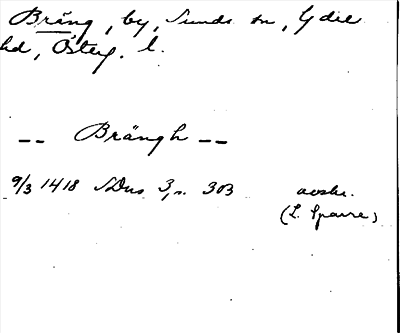 Bräng, by, Sunds sn, Ydre
hd, Österg. l.
-- Brängh --
9/3 1418 SDns 3, s. 303 avskr.
(L. Sparre)